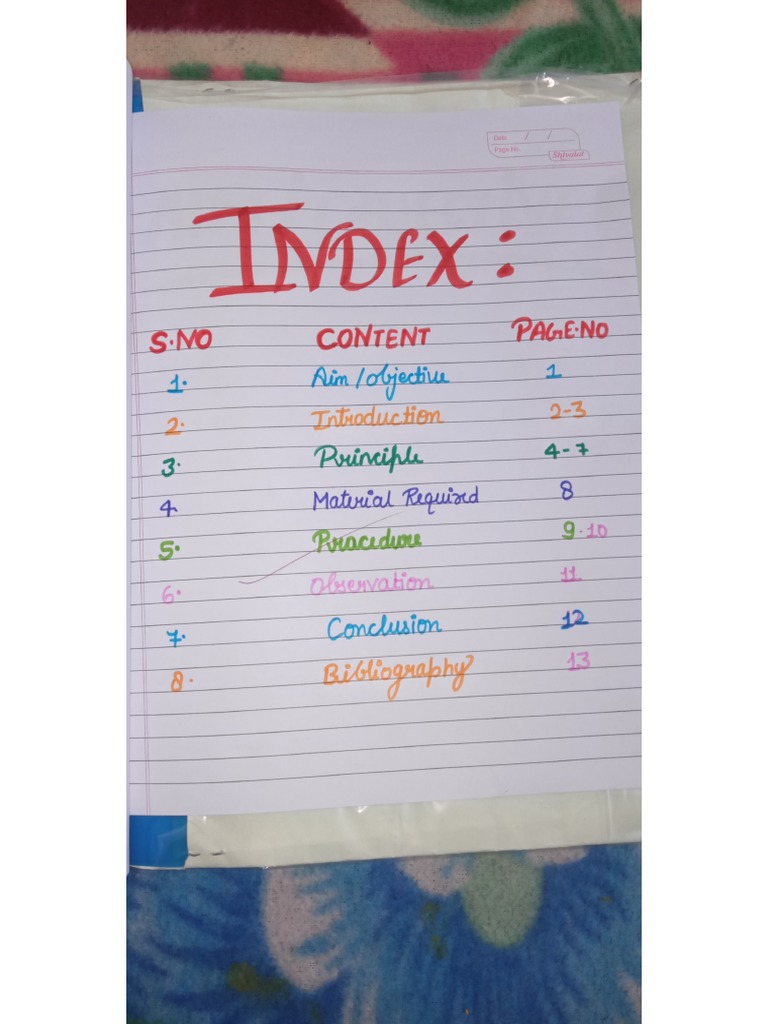 Date. / /
Page No.
Shivalal
INDEX:
S.NO CONTENT PAGE.NO
1. Aim/objective 1
2. Introduction 2-3
3. Principle 4-7
4. Material Required 8
5. Procedure 9-10
6. Observation 11
7. Conclusion 12
8. Bibliography 13